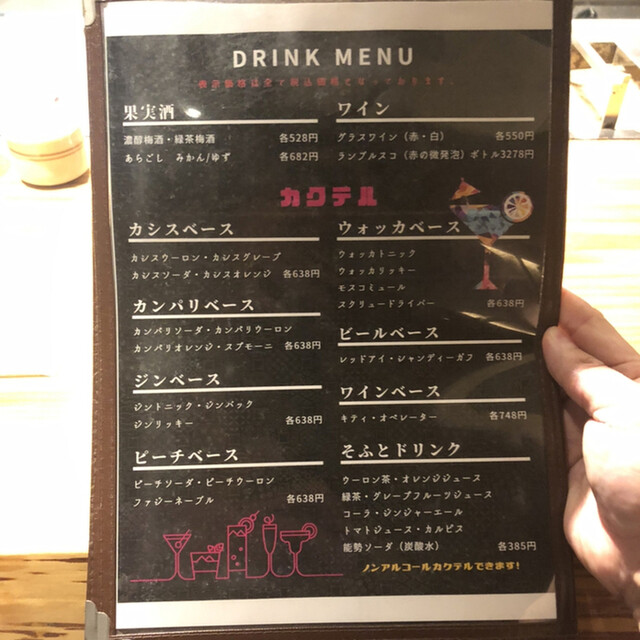 DRINK MENU
表示価格は全て税込価格となっております。
果実酒
濃醇梅酒・緑茶梅酒 各528円
あらごし みかん/ゆず 各682円
ワイン
グラスワイン（赤・白） 各550円
ランブルスコ（赤の微発泡）ボトル3278円
カクテル
カシスベース
カシスウーロン・カシスグレープ
カシスソーダ・カシスオレンジ 各638円
カンパリベース
カンパリソーダ・カンパリウーロン
カンパリオレンジ・スプモーニ 各638円
ジンベース
ジントニック・ジンバック
ジンリッキー 各638円
ピーチベース
ピーチソーダ・ピーチウーロン
ファジーネーブル 各638円
ウォッカベース
ウォッカトニック
ウォッカリッキー
モスコミュール
スクリュードライバー 各638円
ビールベース
レッドアイ・シャンディーガフ 各638円
ワインベース
キティ・オペレーター 各748円
そふとドリンク
ウーロン茶・オレンジジュース
緑茶・グレープフルーツジュース
コーラ・ジンジャーエール
トマトジュース・カルピス
能勢ソーダ（炭酸水） 各385円
ノンアルコールカクテルできます!